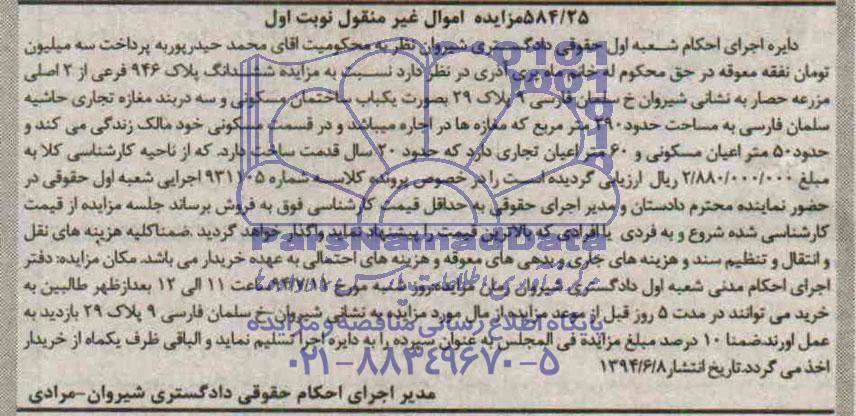 ۵۸۴/۲۵مزایده اموال غیر منقول نوبت اول
دایره اجرای احکام شعبه اول حقوقی دادگستری شیروان نظر به محکومیت اقای محمد حیدرپوربه پرداخت سه میلیون
تومان نفقه معوقه در حق محکوم له خانم ماه پری آذری در نظر دارد نسبت به مزایده ششدانگ پلاک ۹۴۶ فرعی از ۲ اصلی
مزرعه حصار به نشانی شیروان خ سلمان فارسی ۹ پلاک ۲۹ بصورت یکباب ساختمان مسکونی و سه دربند مغازه تجاری حاشیه
سلمان فارسی به مساحت حدود ۲۹۰ متر مربع که مغازه ها در اجاره میباشد و در قسمت مسکونی خود مالک زندگی می کند و
حدود۵۰ متر اعیان مسکونی و ۶۰ متر اعیان تجاری دارد که حدود ۲۰ سال قدمت ساخت دارد. که از ناحیه کارشناسی کلا به
مبلغ ۲/۸۸۰/۰۰۰/۰۰۰ ریال ارزیابی گردیده است را در خصوص پرونده کلاسه شماره ۹۳۱۱۰۵ اجرایی شعبه اول حقوقی در
حضور نماینده محترم دادستان و مدیر اجرای حقوقی به حداقل قیمت کارشناسی فوق به فروش برساند جلسه مزایده از قیمت
کارشناسی شده شروع و به فردی یا افرادی که بالاترین قیمت را پیشنهاد نماید واگذار خواهد گردید .ضمناکلیه هزینه های نقل
و انتقال و تنظیم سند و هزینه های جاری و بدهی های معوقه و هزینه های احتمالی به عهده خریدار می باشد. مکان مزایده: دفتر
اجرای احکام مدنی شعبه اول دادگستری شیروان زمان مزایده:روز شنبه مورخ ۹۴/۷/۱۱ ساعت ۱۱ الی ۱۲ بعدازظهر طالبین به
خرید می توانند در مدت ۵ روز قبل از موعد مزایده از مال مورد مزایده به نشانی شیروان خ سلمان فارسی ۹ پلاک ۲۹ بازدید به
عمل اورند.ضمنا ۱۰ درصد مبلغ مزایده فی المجلس به عنوان سپرده را به دایره اجرا تسلیم نماید و الباقی ظرف یکماه از خریدار
اخذ می گردد.تاریخ انتشار ۱۳۹۴/۶/۸
مدیر اجرای احکام حقوقی دادگستری شیروان-مرادی
ParsNamadData
پایگاه اطلاع رسانی مناقصه و مزایده
۰۲۱-۸۸۳۴۹۶۷۰-۵